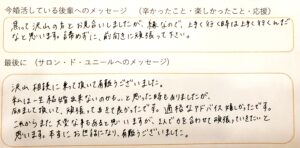 今婚活している後輩へのメッセージ （辛かったこと・楽しかったこと・応援）
焦って沢山の方とお見合いしましたが、縁なので、上手く行く時は上手く行くんだ
なと思います。諦めずに、前向きに頑張って下さい。
最後に（サロン・ド・ユニールへのメッセージ）
沢山相談に乗って頂いて有難うございました。
私は一生結婚出来ないのかも…と思った時もありましたが、
励まして頂いて、頑張って来て良かったです。適格なアドバイス嬉しかったです。
これからまた大変な事もあると思いますが、2人で力を合わせて頑張っていきたいと
思います。本当にお世話になり、有難うございました。